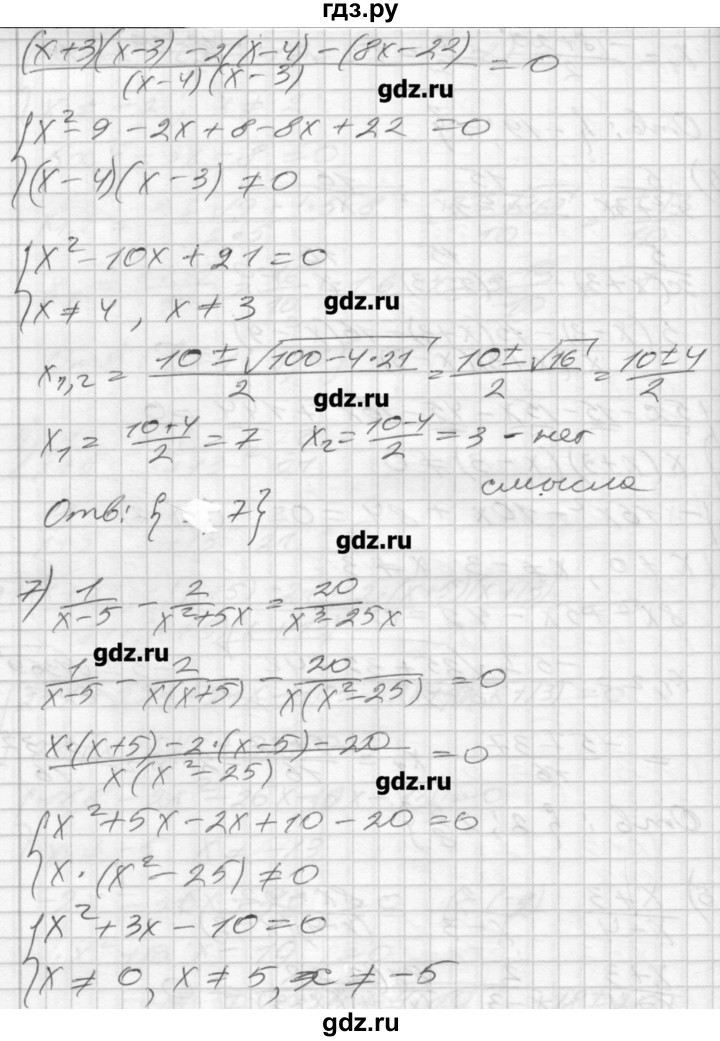 гдз.ру
(x+3)(x-3) -2(x-4) -(8x-22) / (x-4)(x-3) = 0
gdz.ru
{ x²-9-2x+8-8x+22=0
(x-4)(x-3)≠0
{ x²-10x+21=0
x≠4, x≠3
gdz.ru
x₁,₂ = (10±√(100-4·21))/2 = (10±√16)/2 = (10±4)/2
gdz.ru
x₁ = (10+4)/2 = 7 x₂ = (10-4)/2 = 3 - нет
смысла
Отв: { 7}
gdz.ru
7) 1/(x-5) - 2/(x²+5x) = 20/(x³-25x)
gdz.ru
1/(x-5) - 2/(x(x+5)) - 20/(x(x²-25)) = 0
(x·(x+5)-2·(x-5)-20) / (x(x²-25)) = 0
gdz.ru
{ x²+5x-2x+10-20=0
x·(x²-25)≠0
{ x²+3x-10=0
x≠0, x≠5, x≠-5
gdz.ru